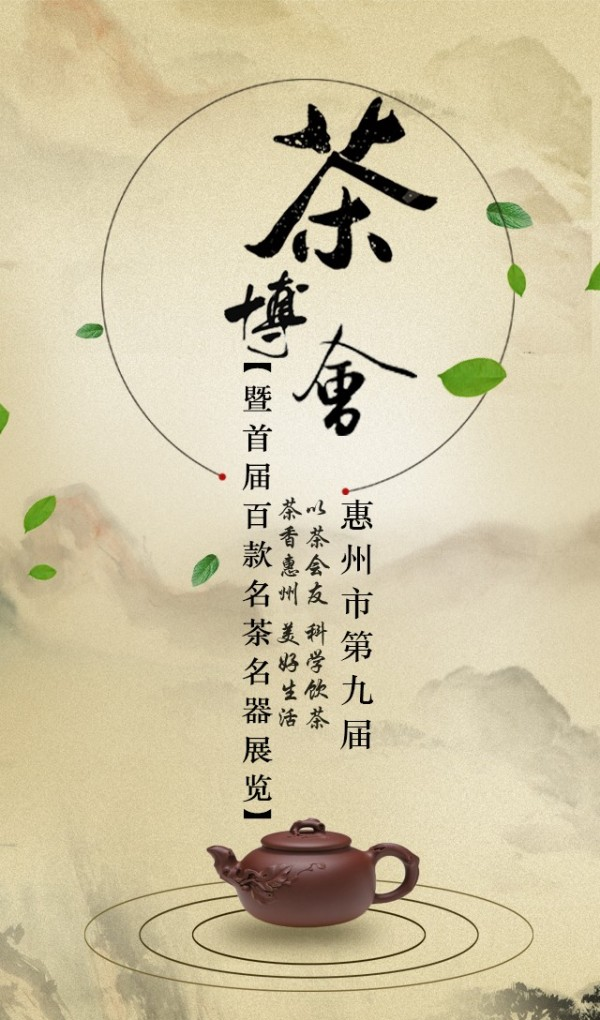 茶博會
惠州市第九届
以茶会友 科学饮茶
茶香惠州 美好生活
【暨首届百款名茶名器展览】